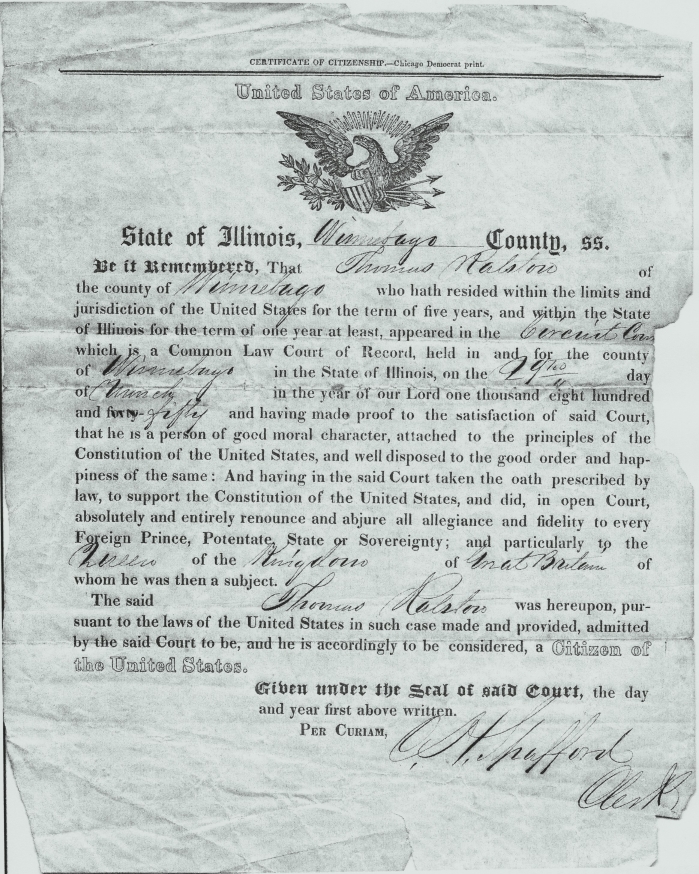 CERTIFICATE OF CITIZENSHIP.—Chicago Democrat print.
United States of America.
State of Illinois, Winnebago County, ss.
Be it Remembered, That Thomas Ralston of
the county of Winnebago who hath resided within the limits and
jurisdiction of the United States for the term of five years, and within the State
of Illinois for the term of one year at least, appeared in the Circuit Cour
which is a Common Law Court of Record, held in and for the county
of Winnebago in the State of Illinois, on the day
of March in the year of our Lord one thousand eight hundred
and forty fifty and having made proof to the satisfaction of said Court,
that he is a person of good moral character, attached to the principles of the
Constitution of the United States, and well disposed to the good order and hap-
piness of the same: And having in the said Court taken the oath prescribed by
law, to support the Constitution of the United States, and did, in open Court,
absolutely and entirely renounce and abjure all allegiance and fidelity to every
Foreign Prince, Potentate, State or Sovereignty; and particularly to the
Queen of the Kingdom of Great Britain of
whom he was then a subject.
The said Thomas Ralston was hereupon, pur-
suant to the laws of the United States in such case made and provided, admitted
by the said Court to be, and he is accordingly to be considered, a Citizen of
the United States.
Given under the Seal of said Court, the day
and year first above written.
PER CURIAM,
C. H. Spafford
Clerk